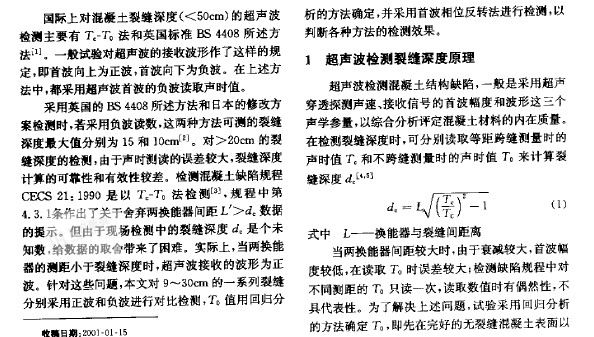 国际上对混凝土裂缝深度(<50cm)的超声波
检测主要有 Tc-T0 法和英国标准 BS 4408 所述方
法[1]。一般试验对超声波的接收波形作了这样的规
定,即首波向上为正波,首波向下为负波。在上述方
法中,都采用超声波首波的负波读取声时值。
采用英国的 BS 4408 所述方法和日本的修改方
案检测时,若采用负波读数,这两种方法可测的裂缝
深度最大值分别为 15 和 10cm[2]。对>20cm 的裂
缝深度的检测,由于声时测读的误差较大,裂缝深度
计算的可靠性和有效性较差。检测混凝土缺陷规程
CECS 21:1990 是以 Tc-T0 法检测[3],规程中第
4.3.1条作出了关于舍弃两换能器间距 L′>dc 数据
的提示。但由于现场检测中的裂缝深度 dc 是个未
知数,给数据的取舍带来了困难。实际上,当两换能
器的测距小于裂缝深度时,超声波接收的波形为正
波。针对这些问题,本文对 9~30cm 的一系列裂缝
分别采用正波和负波进行对比检测,T0 值用回归分
收稿日期:2001-01-15
析的方法确定,并采用首波相位反转法进行检测,以
判断各种方法的检测效果。
1 超声波检测裂缝深度原理
超声波检测混凝土结构缺陷,一般是采用超声
穿透探测声速、接收信号的首波幅度和波形这三个
声学参量,以综合分析评定混凝土材料的内在质量。
在检测裂缝深度时,可分别读取等距跨缝测量时的
声时值 Tc 和不跨缝测量时的声时值 T0 来计算裂
缝深度 dc[4,5]
dc = L√((Tc/Tc)² − 1) (1)
式中 L——换能器与裂缝间距离
当两换能器间距较大时,由于衰减较大,首波幅
度较低,在读取 T0 时误差较大;检测缺陷规程中对
不同测距的 T0 只读一次,读取数值时有偶然性,不
具代表性。为了解决上述问题,试验采用回归分析
的方法确定 T0,即先在完好的无裂缝混凝土表面以